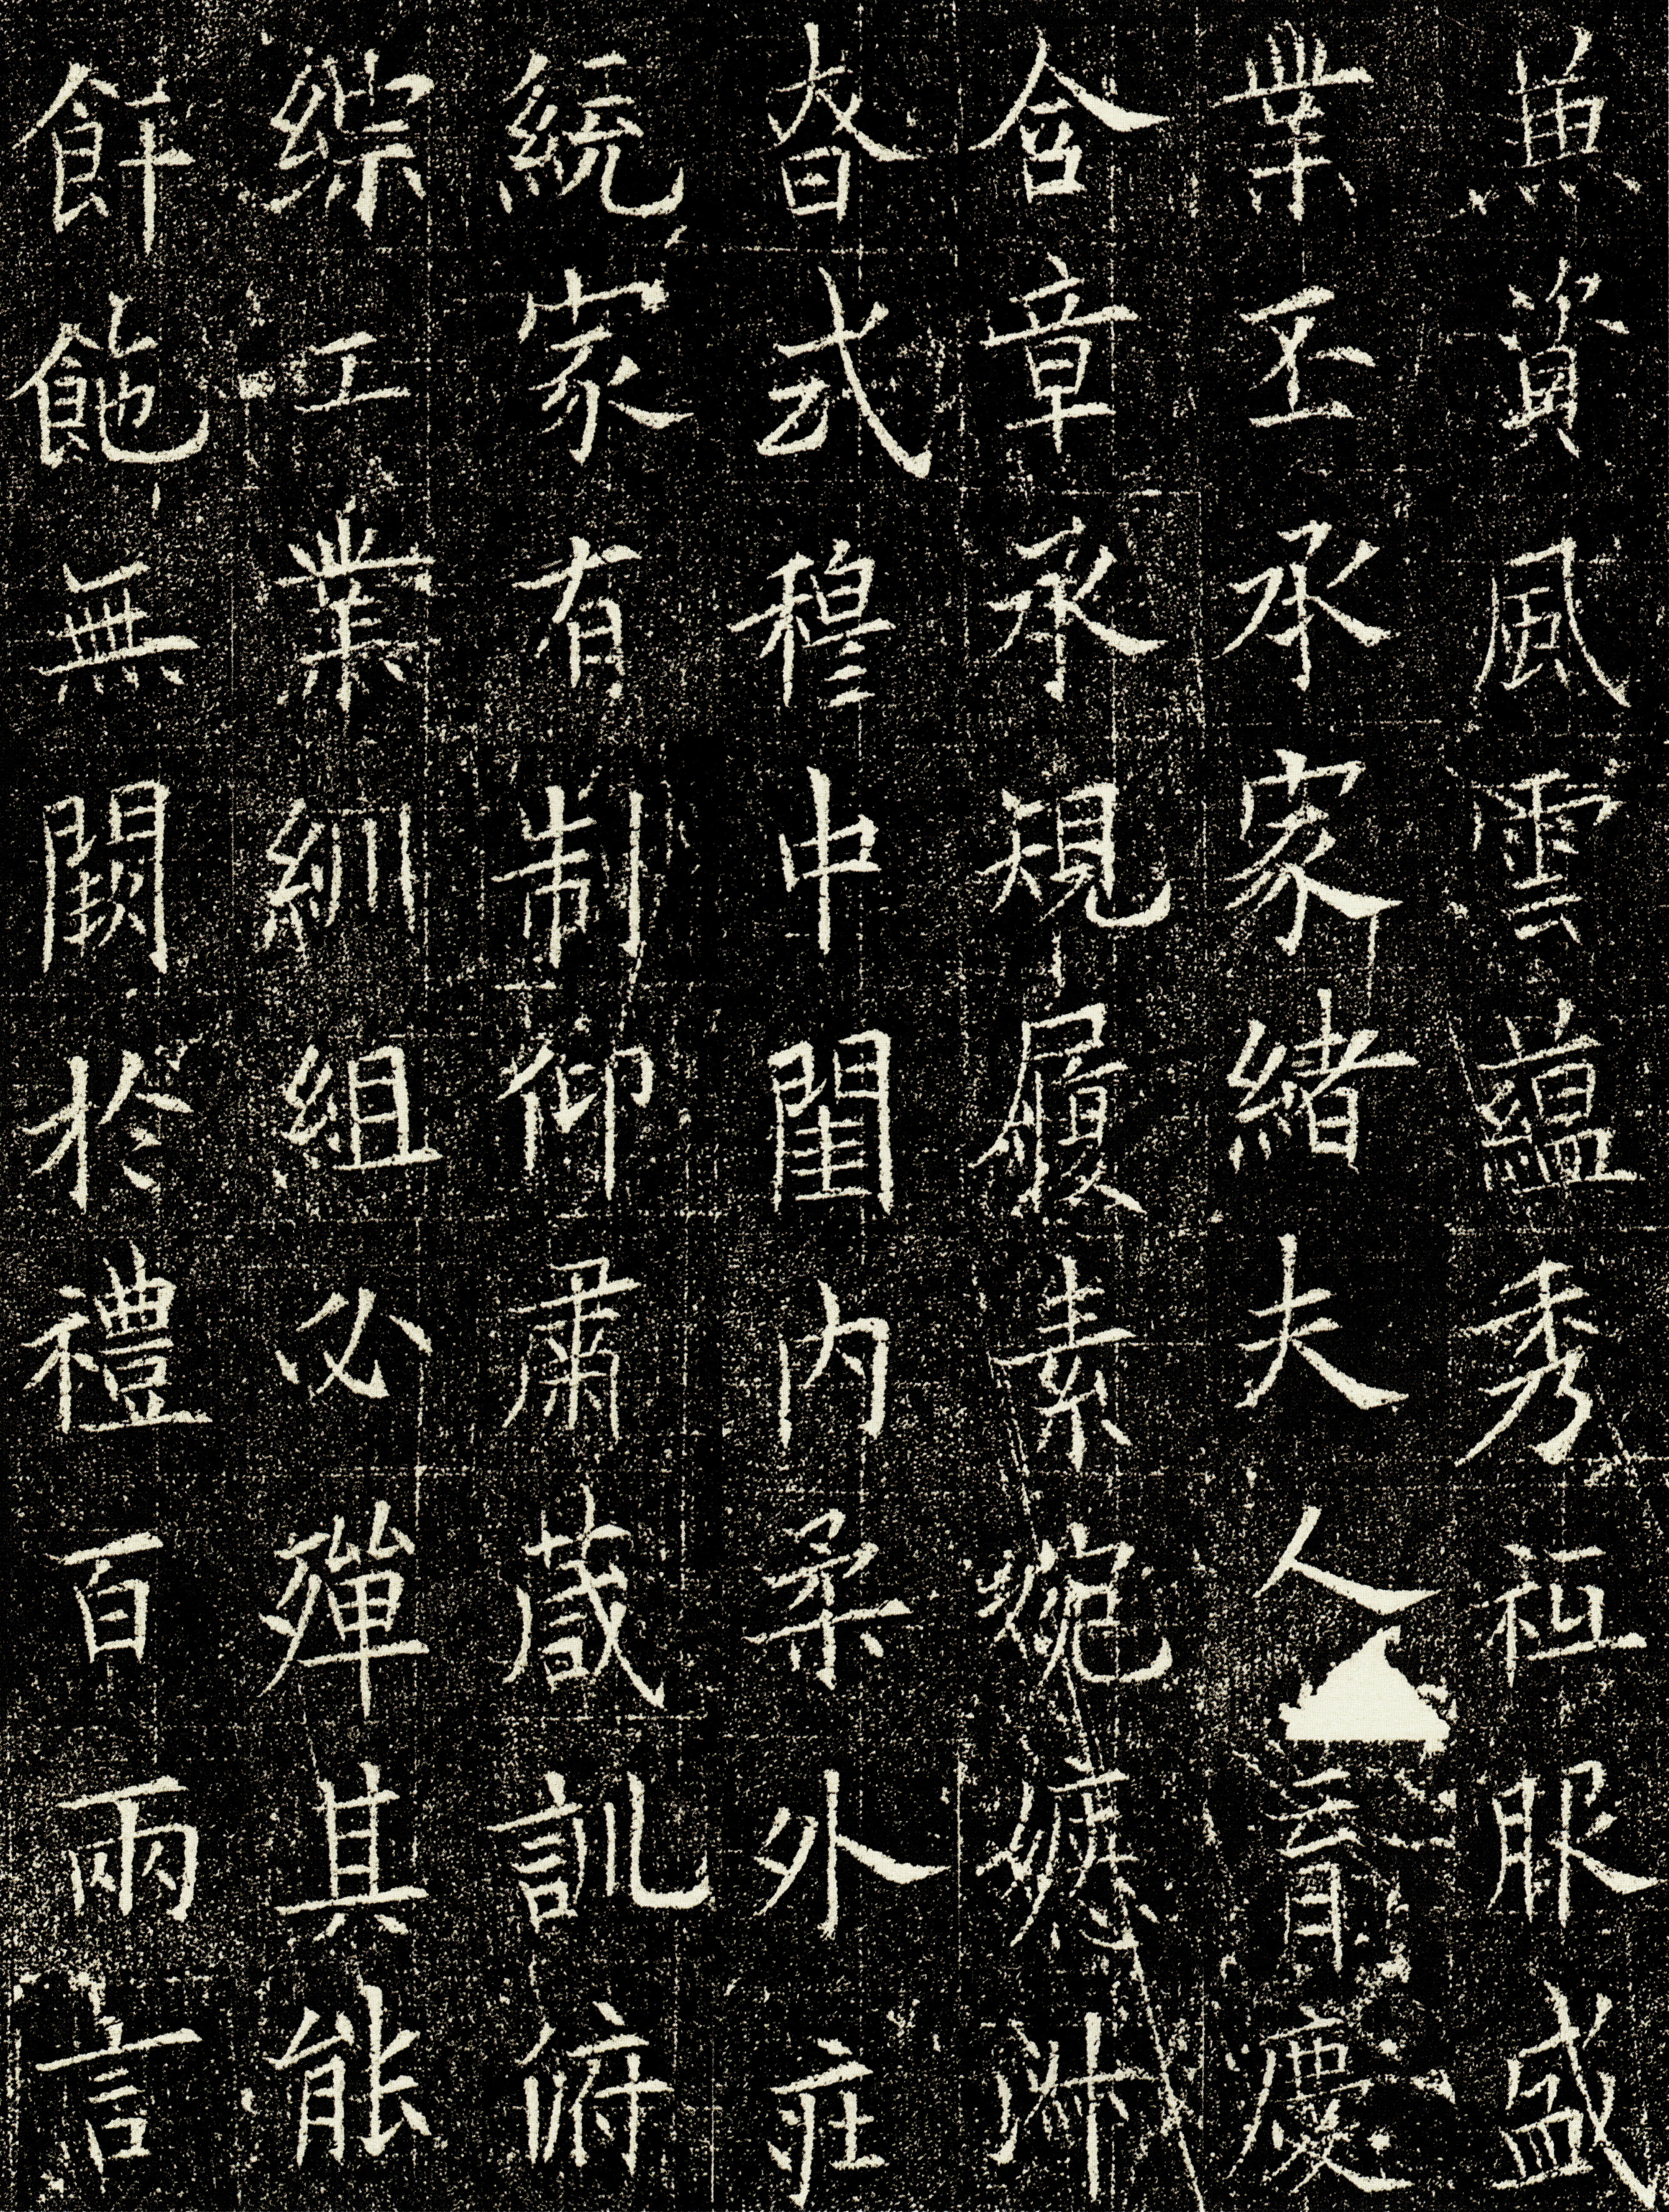 資風雲蘊秀祉服盛
業丕承家緒夫人育慶
含章承規履素婉嫕淑
眘式穆中閨内柔外莊
統家有制仰肅葴訓俯
綜工業紃組必殫其能
無闕於禮百兩言